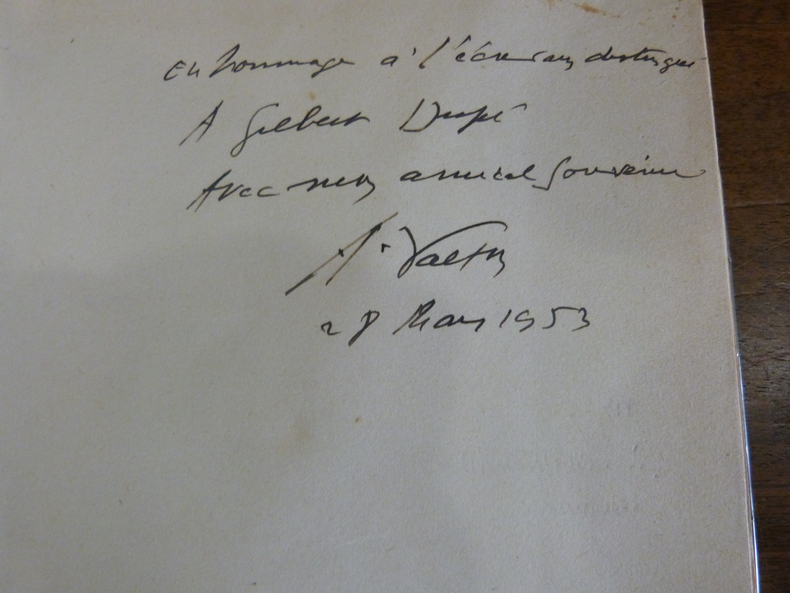 en hommage à l'écrivain distingué
A Gilbert Dupé
Avec mon amical souvenir
28 Mars 1953